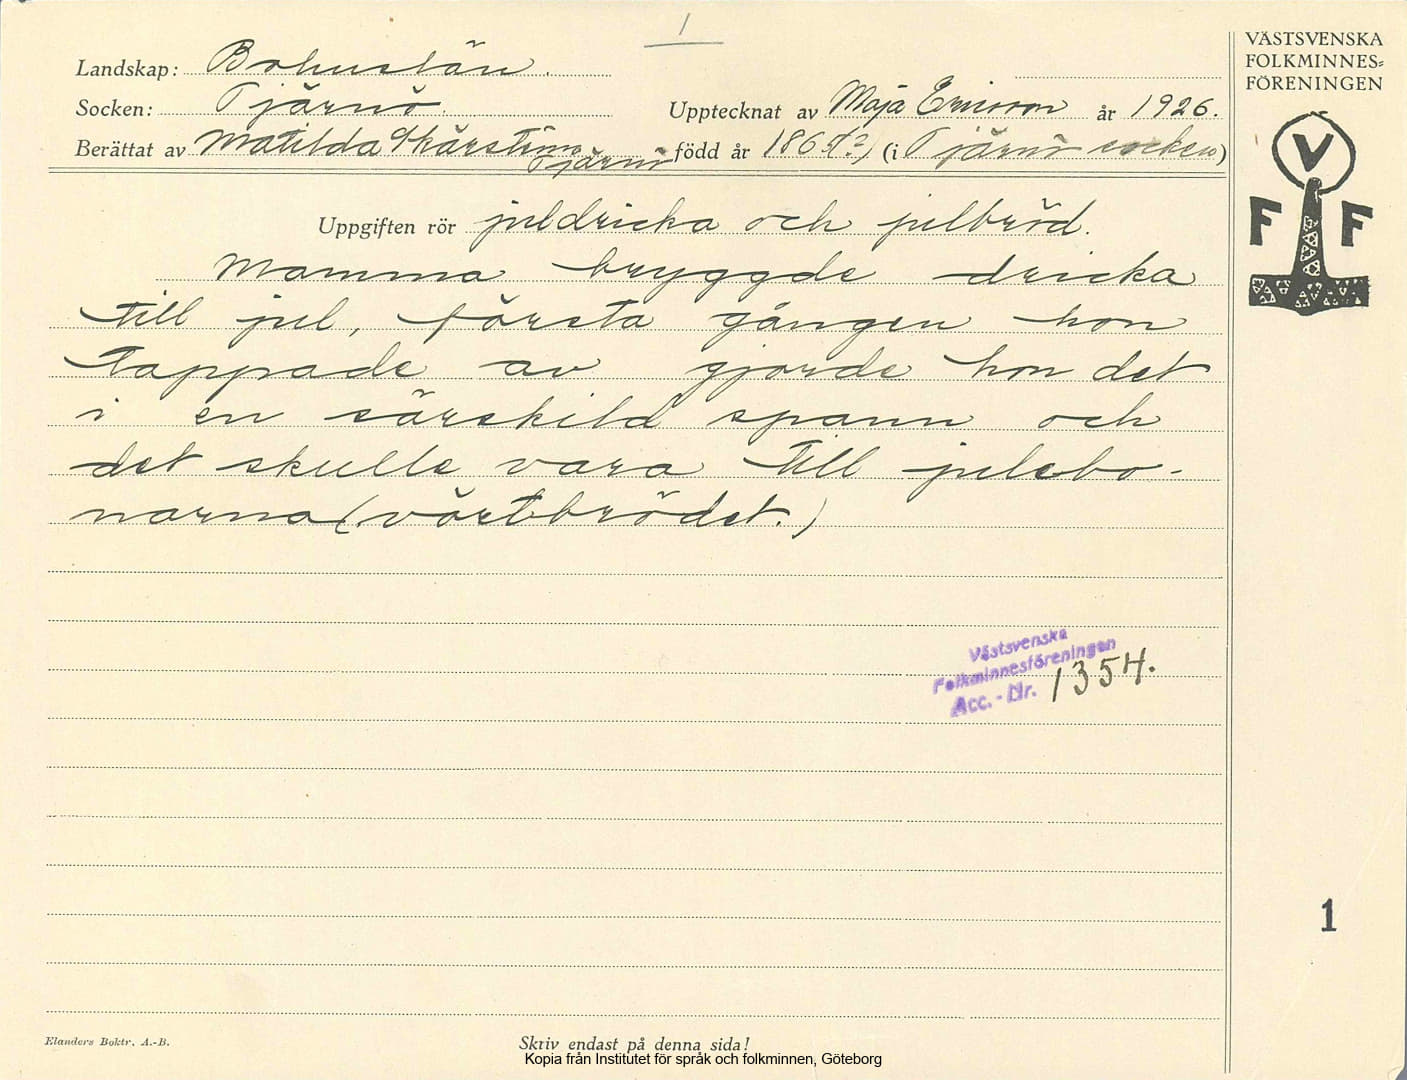 1
VÄSTSVENSKA
FOLKMINNES=
FÖRENINGEN
V
F F
Landskap: Bohuslän.
Socken: Tjärnö. Upptecknat av Maja Ericson år 1926.
Berättat av Matilda Tjärnö född år 186 ?) (i Tjärnö socken)
Uppgiften rör juldricka och julbröd.
Mamma bryggde dricka
till jul, första gången hon
tappade av gjorde hon det
i en särskild spann och
det skulle vara till julebo-
narna (vörtbrödet.)
Västsvenska
Folkminnesföreningen
Acc. - Nr. 1354.
1
Elanders Boktr. A.-B.
Skriv endast på denna sida!
Kopia från Institutet för språk och folkminnen, Göteborg